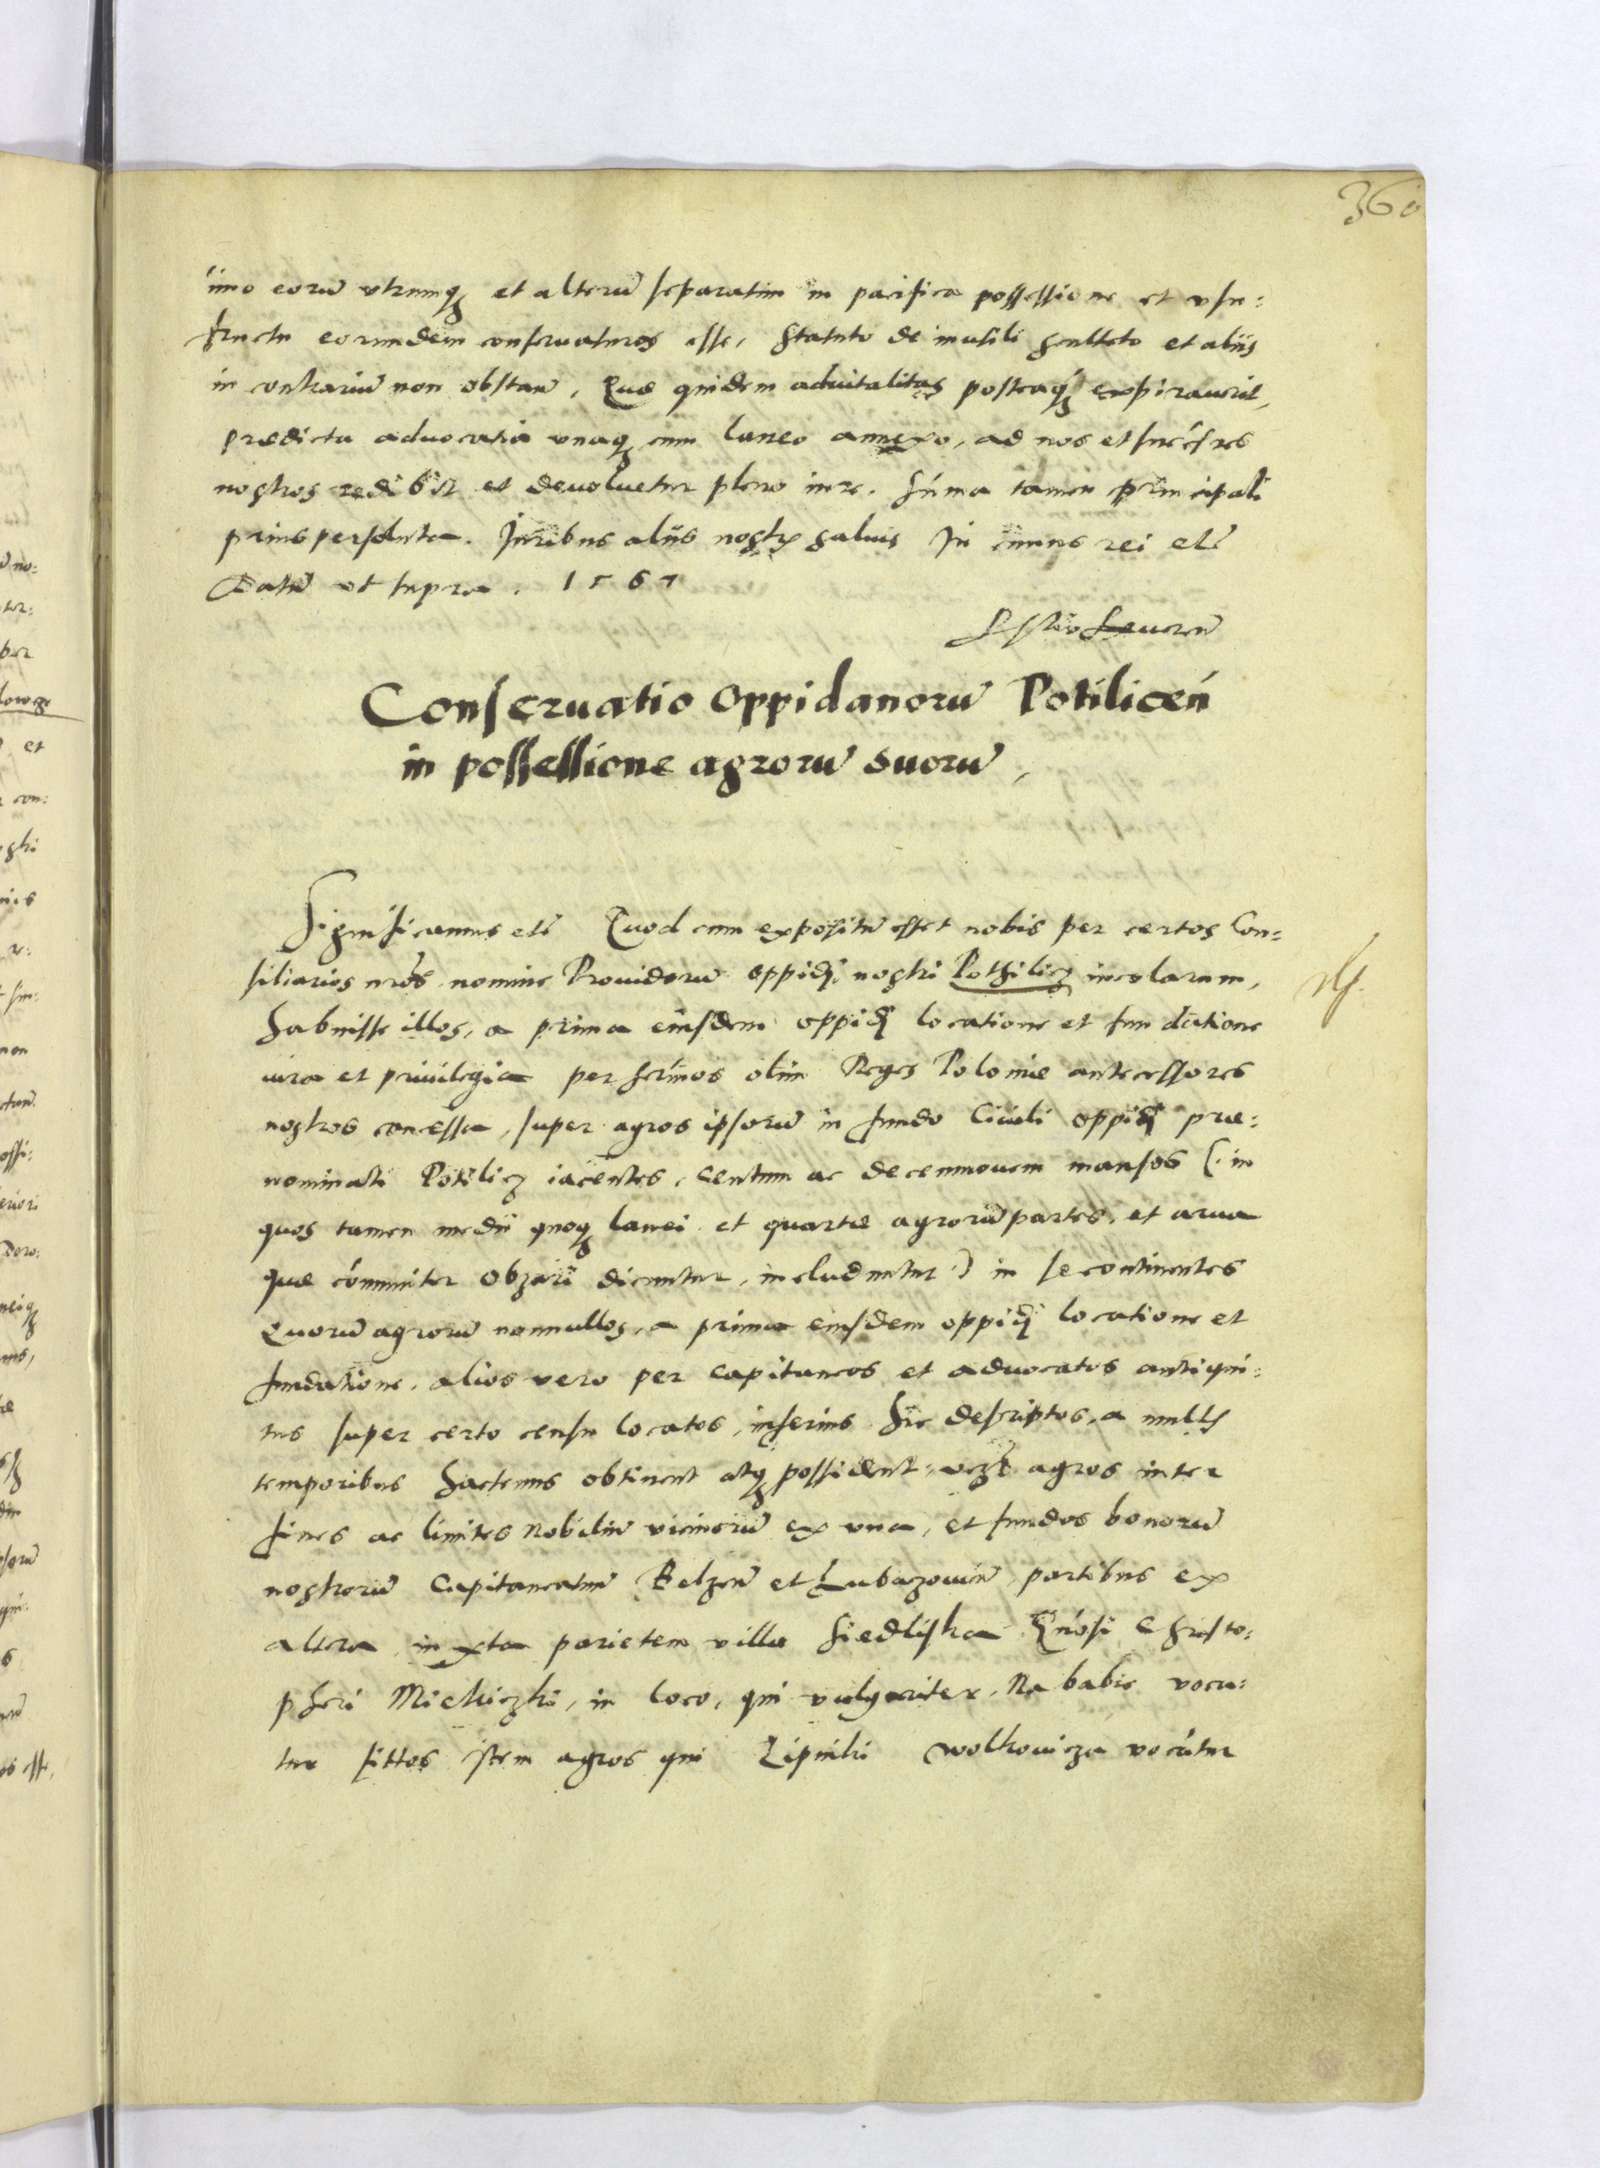 360
imo eorũ vtrumq et alterũ separatim in pacifica possessione et vsu:
fructu eorundem conseruaturos esse, Statuto de inutili sculteto et aliis
in contrariũ non obstañ, Quæ quidem aduitalitas posteaq expirauerit,
prædicta aduocatia vnaq cum laneo annexo, ad nos et succ̃sres
nostros redibit et deuoluetur pleno iure. Sũma tamen principali
prius persoluta. Iuribus aliis nostrꝫ saluis In cuius rei etc̃
Datũ vt supra. 1567
Conseruatio Oppidanorũ Poteliceñ
in possessione agrorũ suorũ,
Significamus etc̃ Quod cum expositũ esset nobis per certos Con:
siliarios nr̃os nomine Prouidorũ oppidi nostri Pothilicz incolarum,
habuisse illos, a prima eiusdem oppidi locatione et fundatione
iura et priuilegia per ser̃mos olim Reges Poloniæ antecessores
nostros concessa, super agros ipsorũ in fundo Ciuili oppidi præ:
nominati Potilicz iacentes, Centum ac decemnouem mansos (in
quos tamen medii quoq lanei et quartæ agrorũ partes, et arua
quæ cõmuniter Obzari dicuntur, includuntur) in se continentes
Quorũ agrorũ nonnullos, a prima eiusdem oppidi locatione et
fundatione, alios vero per capitaneos et aduocatos antiqui:
tus super certo censu locatos, inferius hic descriptos, a multis
temporibus hactenus obtinent atq possident, agros inter
fines ac limites Nobiliũ vicinorũ ex vna, et fundos bonorũ
nostrorũ Capitaneatuũ Belzeñ et Lubaczouieñ partibus ex
altera, iuxta parietem villæ Siedliska Gñosi Christo:
pheri Mieliczki, in loco, qui vulgariter, Na babie vocu:
tur sittos item agros qui Lipniki Wolkowicza vocãtur